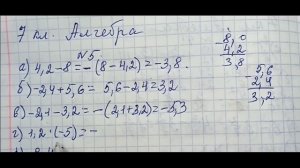 7 кл. Алгебра
№5
а) 4,2-8=-(8-4,2)=-3,8.
б) -2,4+5,6=5,6-2,4=3,2
в) -2,1-3,2=-(2,1+3,2)=-5,3
г) 1,2·(-5)=-
8,0
-4,2
3,8
5,6
-2,4
3,2